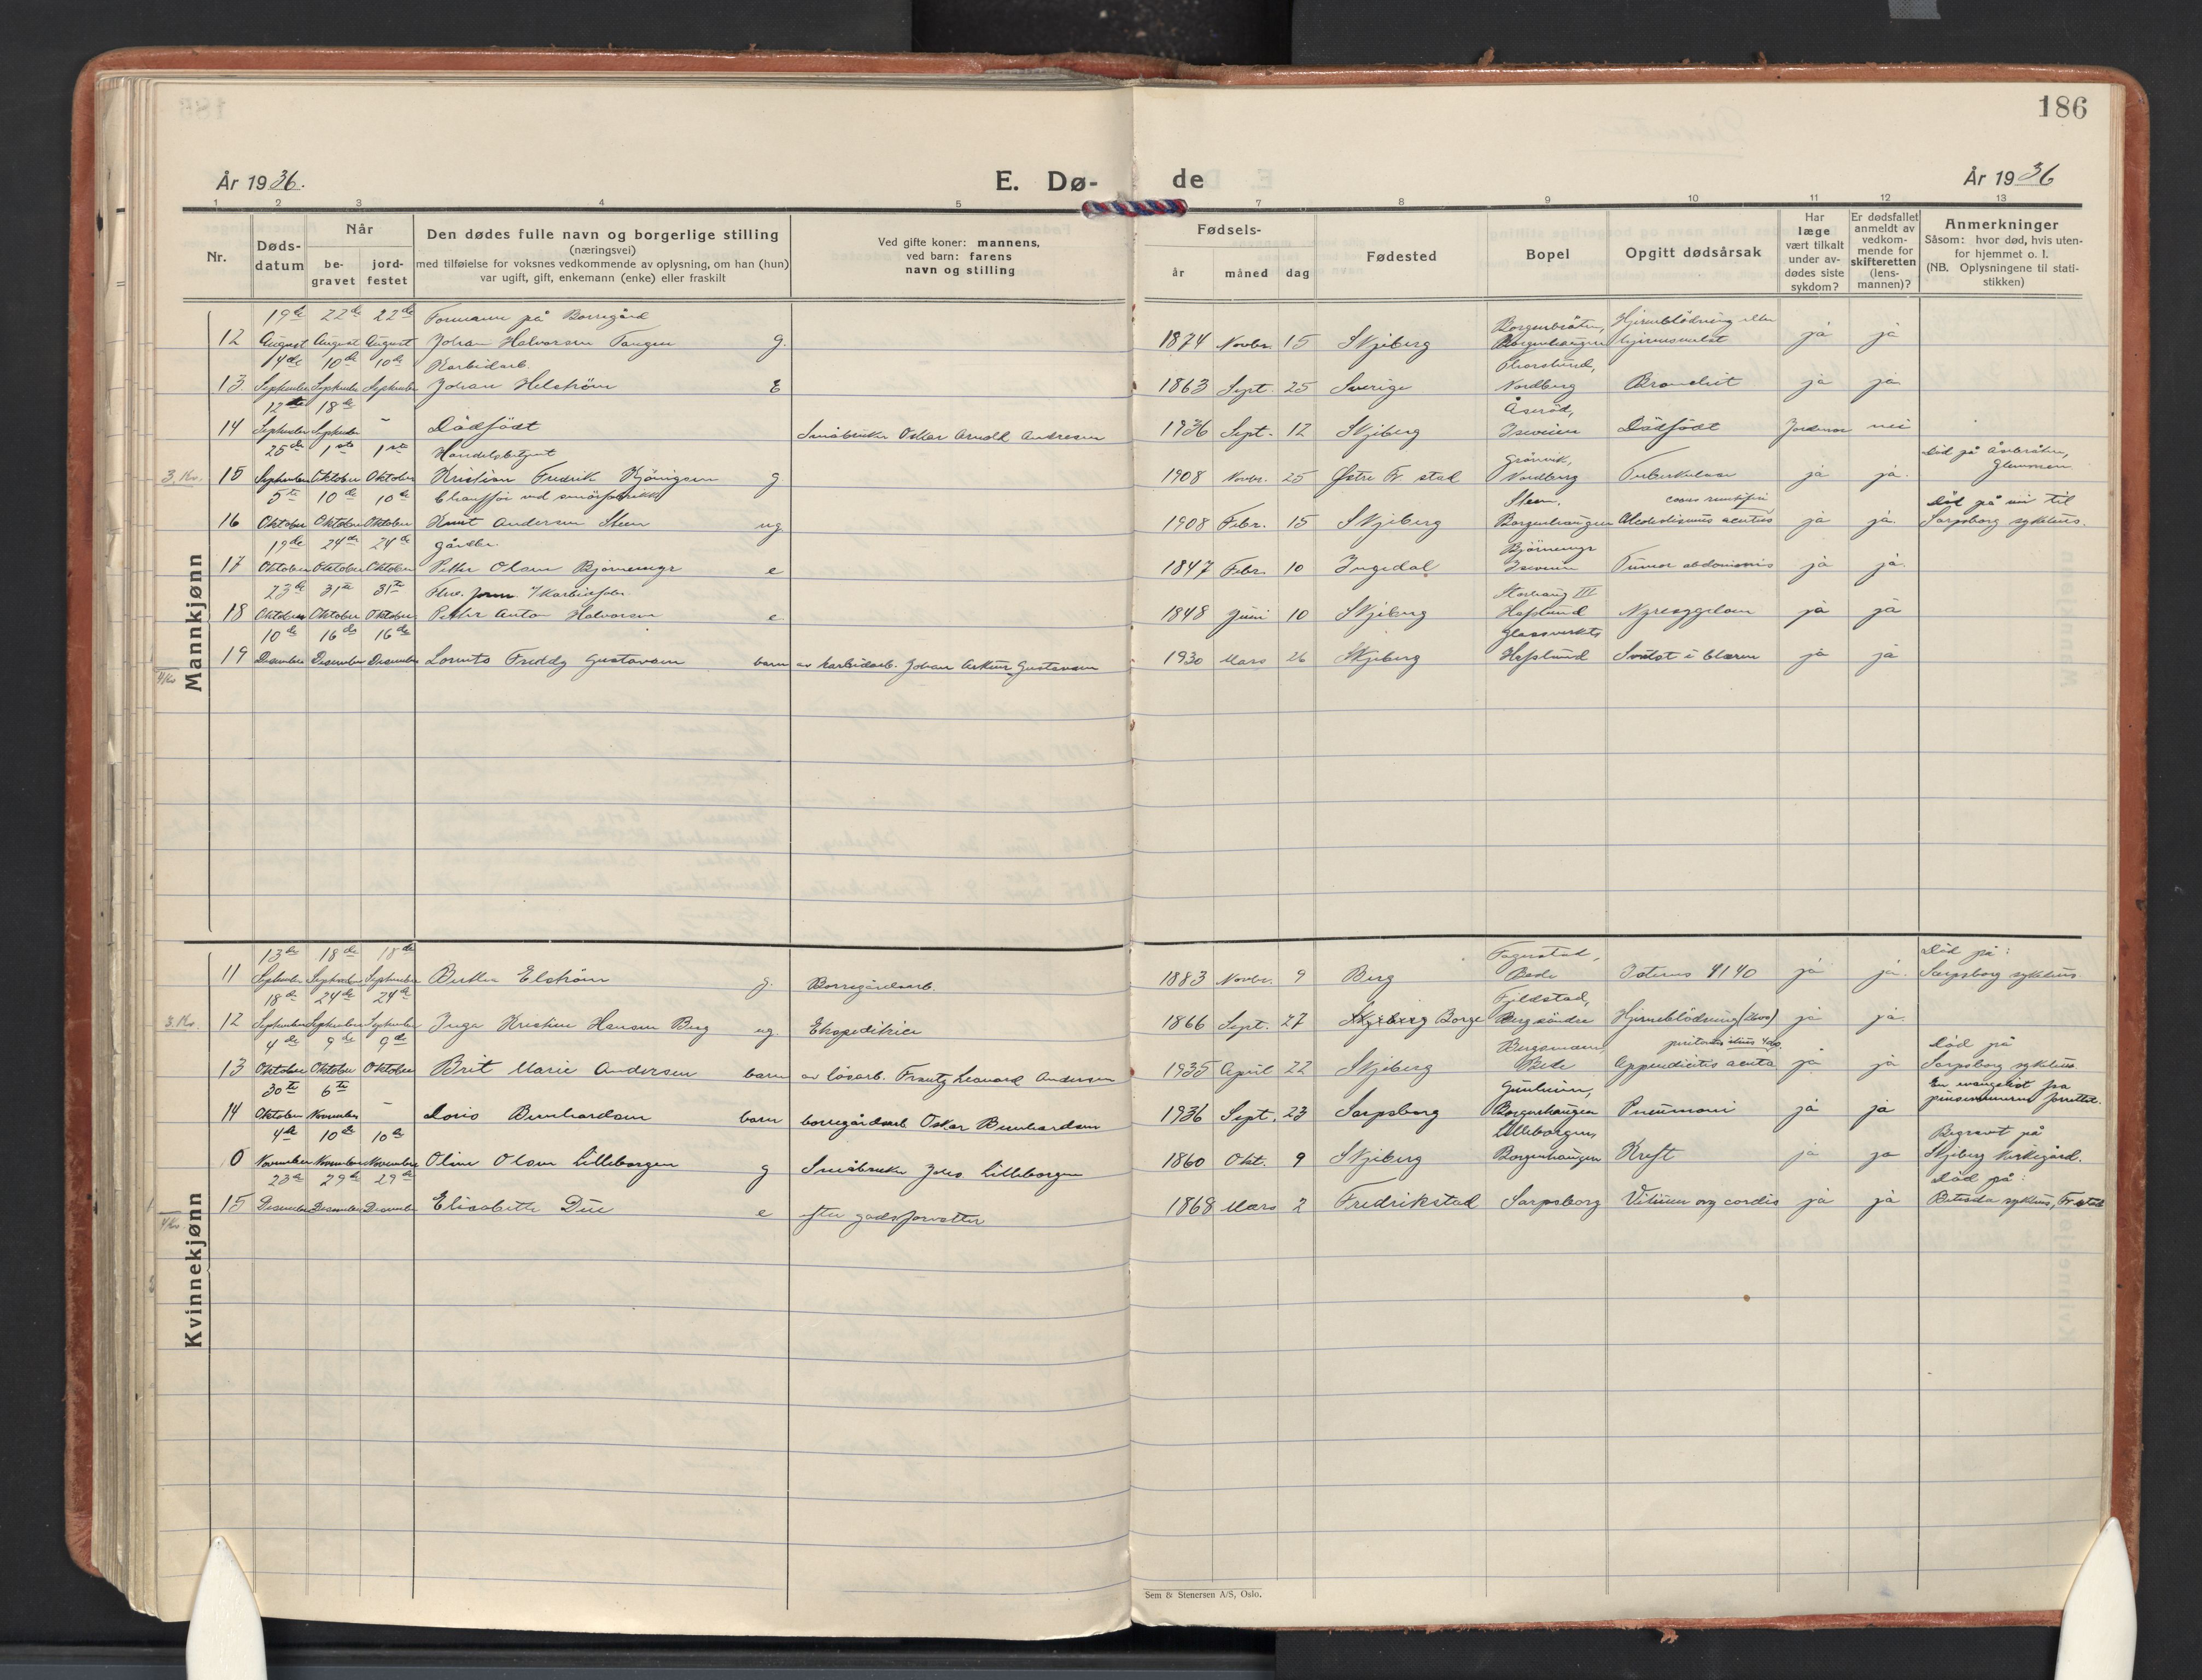 186
År 1936.
E. Dø-
de
År 1936
1 2 3 4 5 7 8 9 10 11 12 13
Nr.
Døds-
datum
Når
be-
gravet
jord-
festet
Den dødes fulle navn og borgerlige stilling
(næringsvei)
med tilføielse for voksnes vedkommende av oplysning, om han (hun)
var ugift, gift, enkemann (enke) eller fraskilt
Ved gifte koner: mannens,
ved barn: farens
navn og stilling
Fødsels-
år måned dag
Fødested
Bopel
Opgitt dødsårsak
Har
læge
vært tilkalt
under av-
dødes siste
sykdom?
Er dødsfallet
anmeldt av
vedkom-
mende for
skifteretten
(lens-
mannen)?
Anmerkninger
Såsom: hvor død, hvis uten-
for hjemmet o. l.
(NB. Oplysningene til stati-
stikken)
Mannkjønn
19de 22de 22de Formann på Borregård Borgenbråten, Hjerneblödning eller
12 August August August Johan Halvorsen Tangen g. 1874 Novbr. 15 Skjeberg Borgenhaugen hjernesvulst ja ja
14de 10de 10de Karbidarb.
13 September September September Johan Helström E 1863 Sept. 25 Sverige Nordberg Bronchit ja ja
12te 18de Åseröd,
14 September September - Dödfödt Småbruker Oskar Arnold Andresen 1936 Sept. 12 Skjeberg Iseveien Dödfödt Jordmor nei
25de 1ste 1ste Handelsbetjent Grönvik, Död på Åsebråten,
3. Kv. 15 September Oktober Oktober Kristian Fredrik Kjöningsen g 1908 Novbr. 25 Østre Fr. stad Nordberg Tuberkulose ja ja. Glemmen
5te 10de 10de Chaufför ved smörfabrikk Steen, Död på vei til
16 Oktober Oktober Oktober Knut Andersen Steen ug 1908 Febr. 15 Skjeberg Borgenhaugen Alcoholismus acutus ja ja. Sarpsborg sykehus.
19de 24de 24de Gårdbr. Björnemyr
17 Oktober Oktober Oktober Petter Olsen Björnemyr e 1847 Febr. 10 Ingedal Iseveien Tumor abdominis ja ja.
23de 31te 31te Fhv. form. v/Karbidfabr. III
18 Oktober Oktober Oktober Petter Anton Halvorsen e 1848 Juni 10 Skjeberg Hafslund Nyresygdom ja ja
10de 16de 16de Glassverket
19 Desember Desember Desember Lorents Freddy Gustavsen barn av karbidarb. Johan Artur Gustavsen 1930 Mars 26 Skjeberg Hafslund Svulst i blæren ja ja
4 Kv
Kvinnekjønn
13de 18de 18de Fagerstad, Död på:
11 September September September Berthea Elström g. Borregårdsarb. 1883 Novbr. 9 Berg Bede Icterus 4140 ja ja. Sarpsborg sykehus
18de 24de 24de Fjeldstad,
3. Kv. 12 September September September Inga Kristine Hansen Berg ug Ekspeditrice 1866 Sept. 27 Skjeberg Borge Berg söndre Hjerneblödning (2600) ja ja.
4de 9de 9de Död på
13 Oktober Oktober Oktober Brit Marie Andersen barn av lösarb. Frantz Leonard Andersen 1935 April 22 Skjeberg Bede Appendicitis acuta ja ja Sarpsborg sykehus
30te 6te Gunheim, En evangelist fra
14 Oktober November - Doris Bernhardsen barn borregårdsarb Oskar Bernhardsen 1936 Sept. 23 Sarpsborg Borgenhaugen Pneumoni ja ja pinsevennerne forrettet.
4de 10de 10de Lilleborgen, Begravet på
0 November November November Oline Olsen Lilleborgen g Småbruker Johs Lilleborgen 1860 Okt. 9 Skjeberg Borgenhaugen Kreft ja ja Skjeberg kirkegård.
23de 29de 29de Död på:
15 Desember Desember Desember Elisabeth Due e efter godsforvalter 1868 Mars 2 Fredrikstad Sarpsborg Vitium org cordis ja ja Betesda sykehus, Fr.stad
4 Kv
Sem & Stenersen A/S, Oslo.